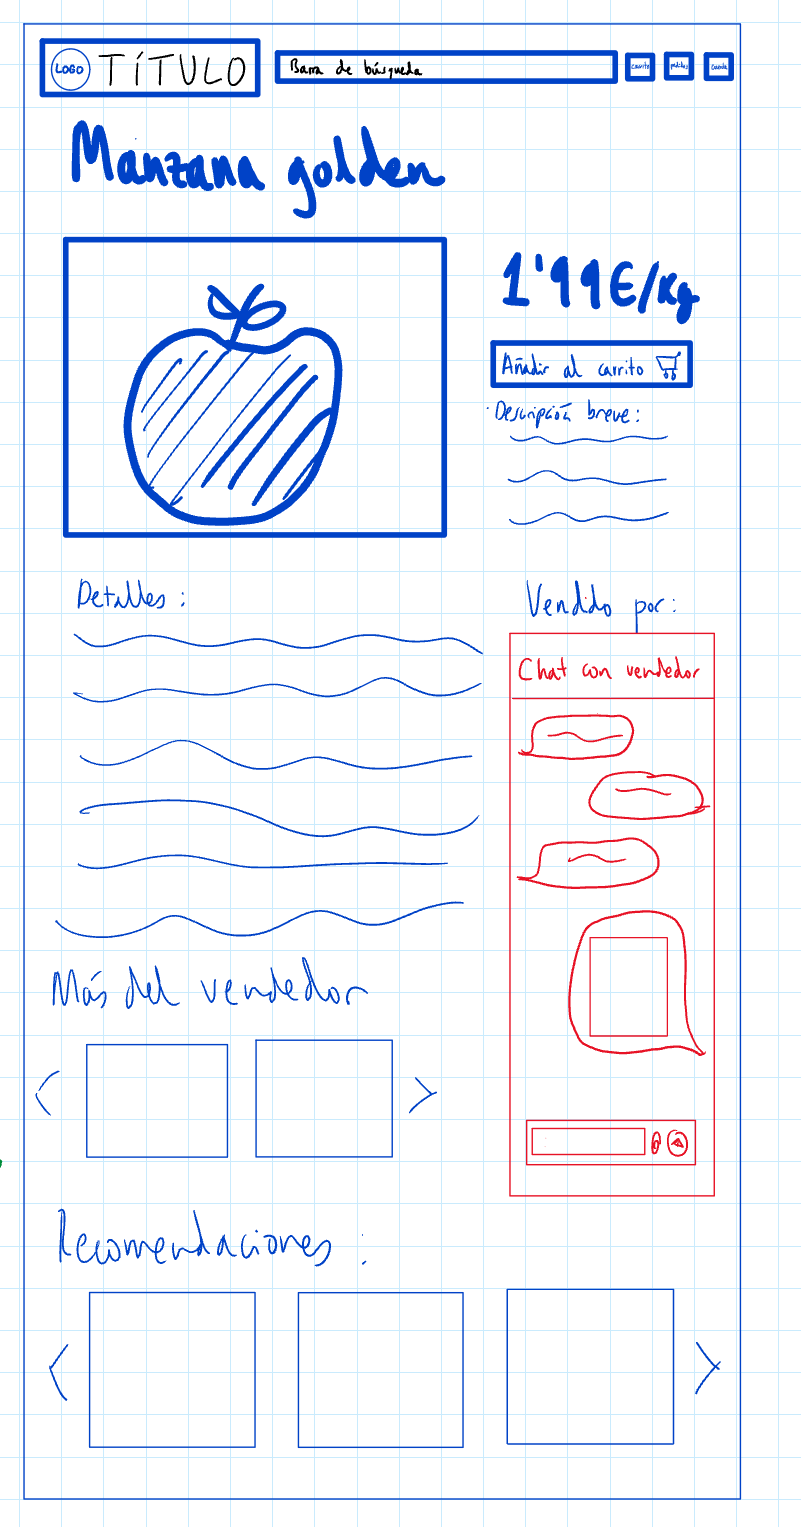 LOGO TÍTULO
Barra de búsqueda
carrito
pedidos
Cuenta
Manzana golden
1'99€/Kg
Añadir al carrito
Descripción breve:
Detalles :
Vendido por:
Chat con vendedor
Más del vendedor
Recomendaciones :